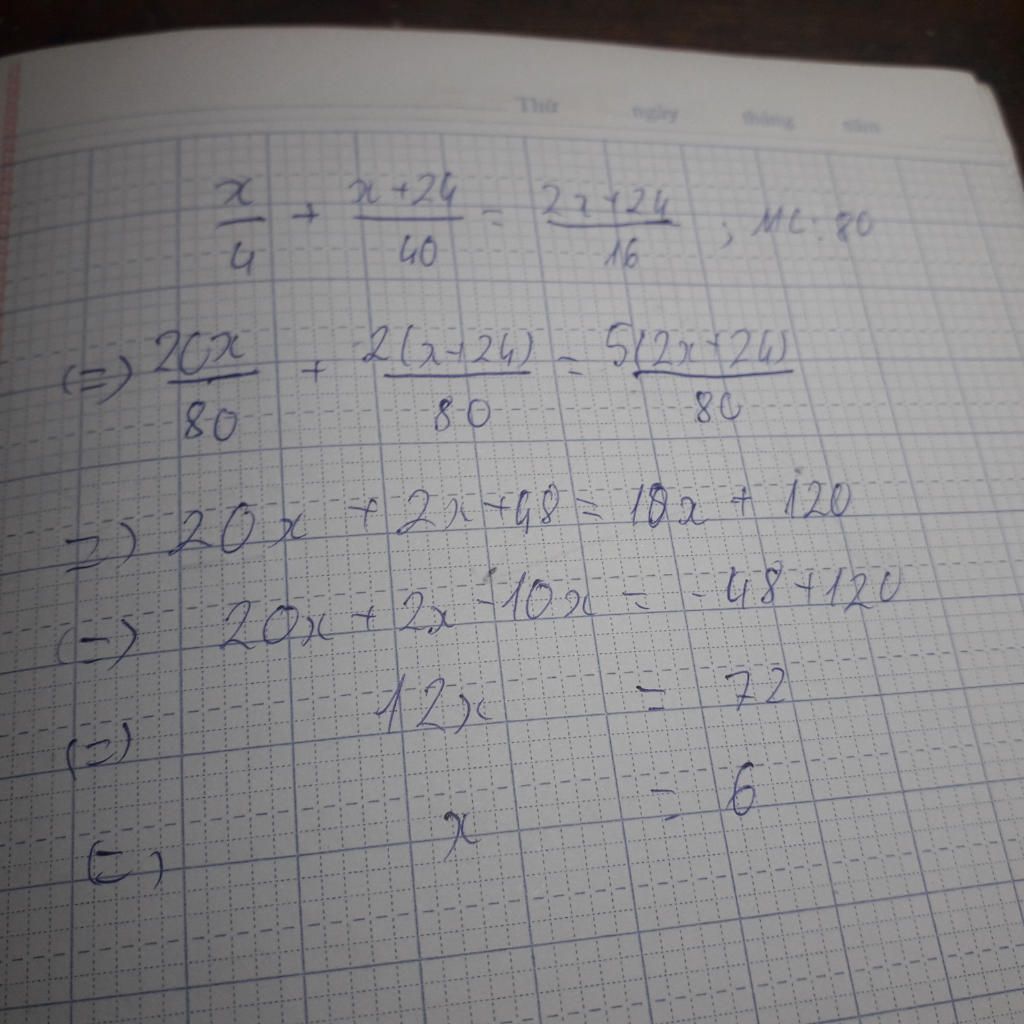 Thứ ngày tháng năm
x/4 + x+24/40 = 2x+24/16 ; MC: 80
(=) 20x/80 + 2(x+24)/80 = 5(2x+24)/80
=) 20x + 2x+48 = 10x + 120
(=) 20x + 2x -10x = -48+120
(=) 12x = 72
(=) x = 6